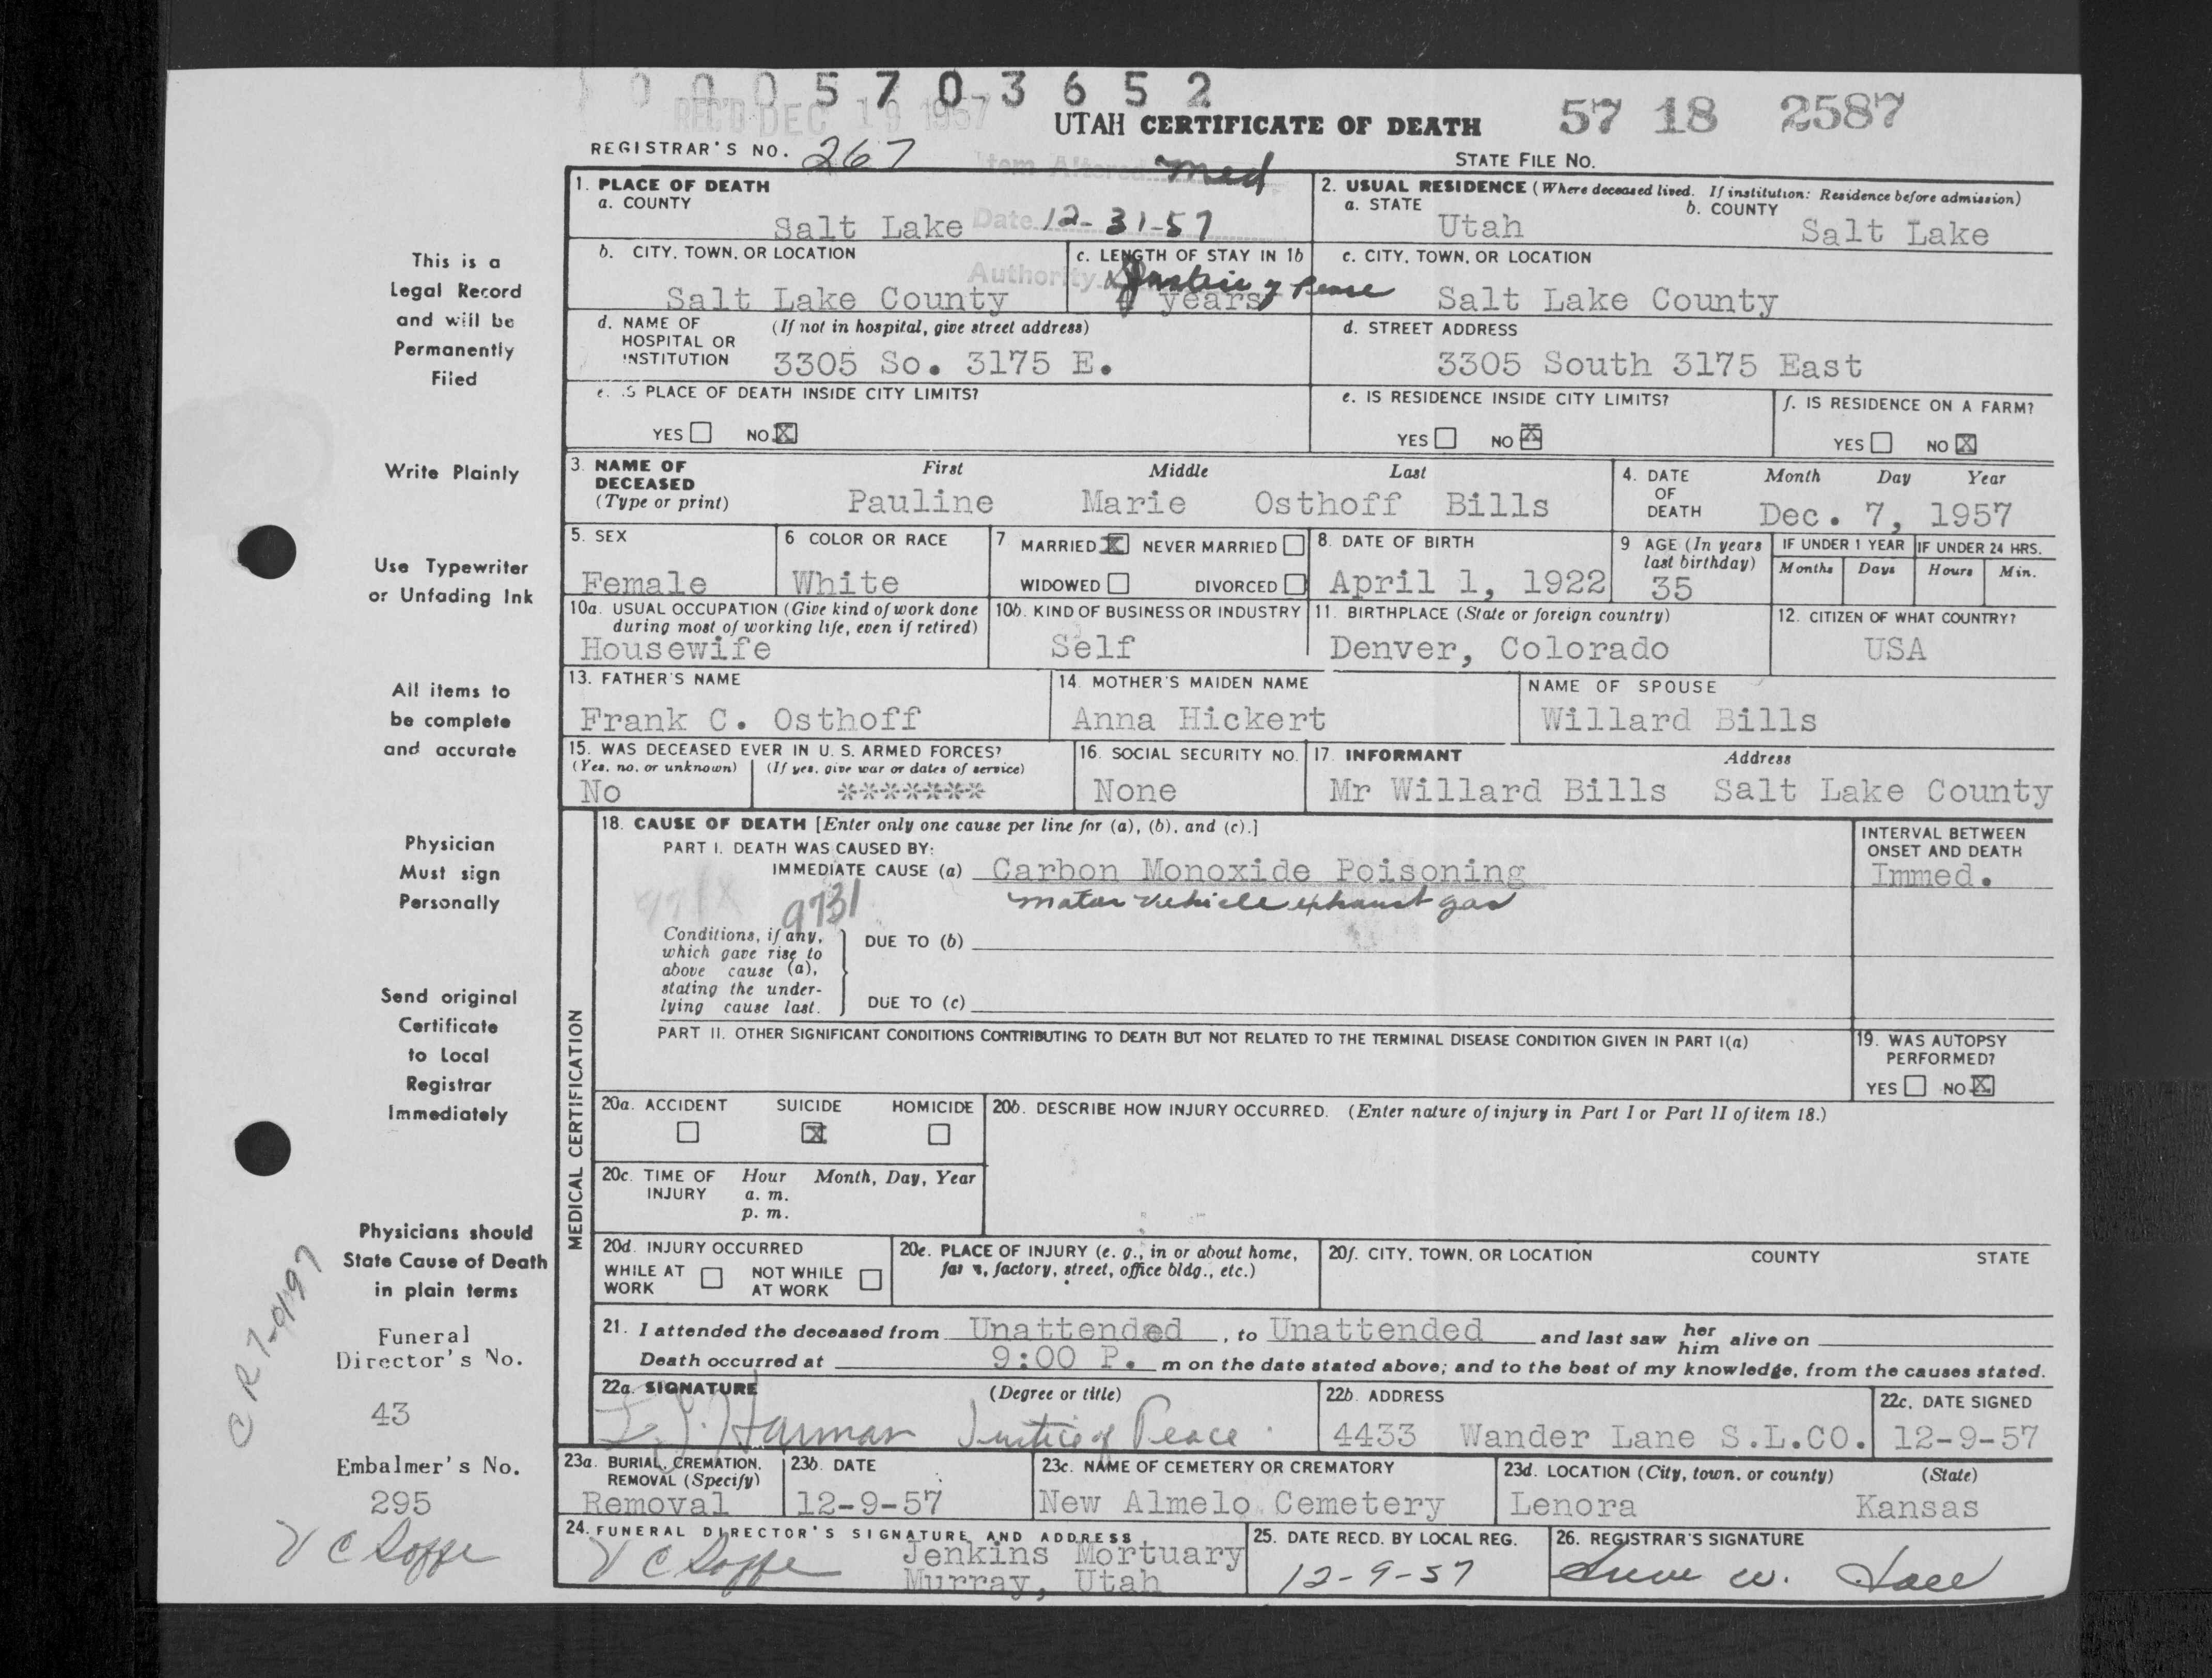 0 0 0 5 7 0 3 6 5 2
REC'D DEC 19 1957
UTAH CERTIFICATE OF DEATH
57 18 2587
REGISTRAR'S NO. 267
STATE FILE NO.
Item Altered med
Date 12-31-57
Authority Justice of Peace
1. PLACE OF DEATH
a. COUNTY
Salt Lake
2. USUAL RESIDENCE (Where deceased lived. If institution: Residence before admission)
a. STATE
Utah
b. COUNTY
Salt Lake
b. CITY, TOWN, OR LOCATION
Salt Lake County
c. LENGTH OF STAY IN 1b
years
c. CITY, TOWN, OR LOCATION
Salt Lake County
d. NAME OF HOSPITAL OR INSTITUTION
(If not in hospital, give street address)
3305 So. 3175 E.
d. STREET ADDRESS
3305 South 3175 East
e. IS PLACE OF DEATH INSIDE CITY LIMITS?
YES NO X
e. IS RESIDENCE INSIDE CITY LIMITS?
YES NO X
f. IS RESIDENCE ON A FARM?
YES NO X
3. NAME OF DECEASED
(Type or print)
First Middle Last
Pauline Marie Osthoff Bills
4. DATE OF DEATH
Month Day Year
Dec. 7, 1957
5. SEX
Female
6 COLOR OR RACE
White
7 MARRIED X NEVER MARRIED
WIDOWED DIVORCED
8. DATE OF BIRTH
April 1, 1922
9 AGE (In years last birthday)
35
IF UNDER 1 YEAR
Months Days
IF UNDER 24 HRS.
Hours Min.
10a. USUAL OCCUPATION (Give kind of work done during most of working life, even if retired)
Housewife
10b. KIND OF BUSINESS OR INDUSTRY
Self
11. BIRTHPLACE (State or foreign country)
Denver, Colorado
12. CITIZEN OF WHAT COUNTRY?
USA
13. FATHER'S NAME
Frank C. Osthoff
14. MOTHER'S MAIDEN NAME
Anna Hickert
NAME OF SPOUSE
Willard Bills
15. WAS DECEASED EVER IN U. S. ARMED FORCES?
(Yes, no, or unknown) (If yes, give war or dates of service)
No *******
16. SOCIAL SECURITY NO.
None
17. INFORMANT Address
Mr Willard Bills Salt Lake County
MEDICAL CERTIFICATION
18. CAUSE OF DEATH [Enter only one cause per line for (a), (b), and (c).]
PART I. DEATH WAS CAUSED BY:
IMMEDIATE CAUSE (a) Carbon Monoxide Poisoning
motor vehicle exhaust gas
9731
INTERVAL BETWEEN ONSET AND DEATH
Immed.
Conditions, if any, which gave rise to above cause (a), stating the under-lying cause last.
DUE TO (b)
DUE TO (c)
PART II. OTHER SIGNIFICANT CONDITIONS CONTRIBUTING TO DEATH BUT NOT RELATED TO THE TERMINAL DISEASE CONDITION GIVEN IN PART I(a)
19. WAS AUTOPSY PERFORMED?
YES NO X
20a. ACCIDENT SUICIDE HOMICIDE
X
20b. DESCRIBE HOW INJURY OCCURRED. (Enter nature of injury in Part I or Part II of item 18.)
20c. TIME OF INJURY Hour Month, Day, Year
a. m.
p. m.
20d. INJURY OCCURRED
WHILE AT WORK NOT WHILE AT WORK
20e. PLACE OF INJURY (e. g., in or about home, farm, factory, street, office bldg., etc.)
20f. CITY, TOWN, OR LOCATION COUNTY STATE
21. I attended the deceased from Unattended, to Unattended and last saw her him alive on
Death occurred at 9:00 P. m on the date stated above; and to the best of my knowledge, from the causes stated.
22a. SIGNATURE (Degree or title)
Harman Justice of Peace
22b. ADDRESS
4433 Wander Lane S.L.CO.
22c. DATE SIGNED
12-9-57
23a. BURIAL, CREMATION, REMOVAL (Specify)
Removal
23b. DATE
12-9-57
23c. NAME OF CEMETERY OR CREMATORY
New Almelo Cemetery
23d. LOCATION (City, town, or county) (State)
Lenora Kansas
24. FUNERAL DIRECTOR'S SIGNATURE AND ADDRESS
Jenkins Mortuary
Murray, Utah
25. DATE RECD. BY LOCAL REG.
12-9-57
26. REGISTRAR'S SIGNATURE
This is a
Legal Record
and will be
Permanently
Filed
Write Plainly
Use Typewriter
or Unfading Ink
All items to
be complete
and accurate
Physician
Must sign
Personally
Send original
Certificate
to Local
Registrar
Immediately
Physicians should
State Cause of Death
in plain terms
Funeral
Director's No.
43
Embalmer's No.
295